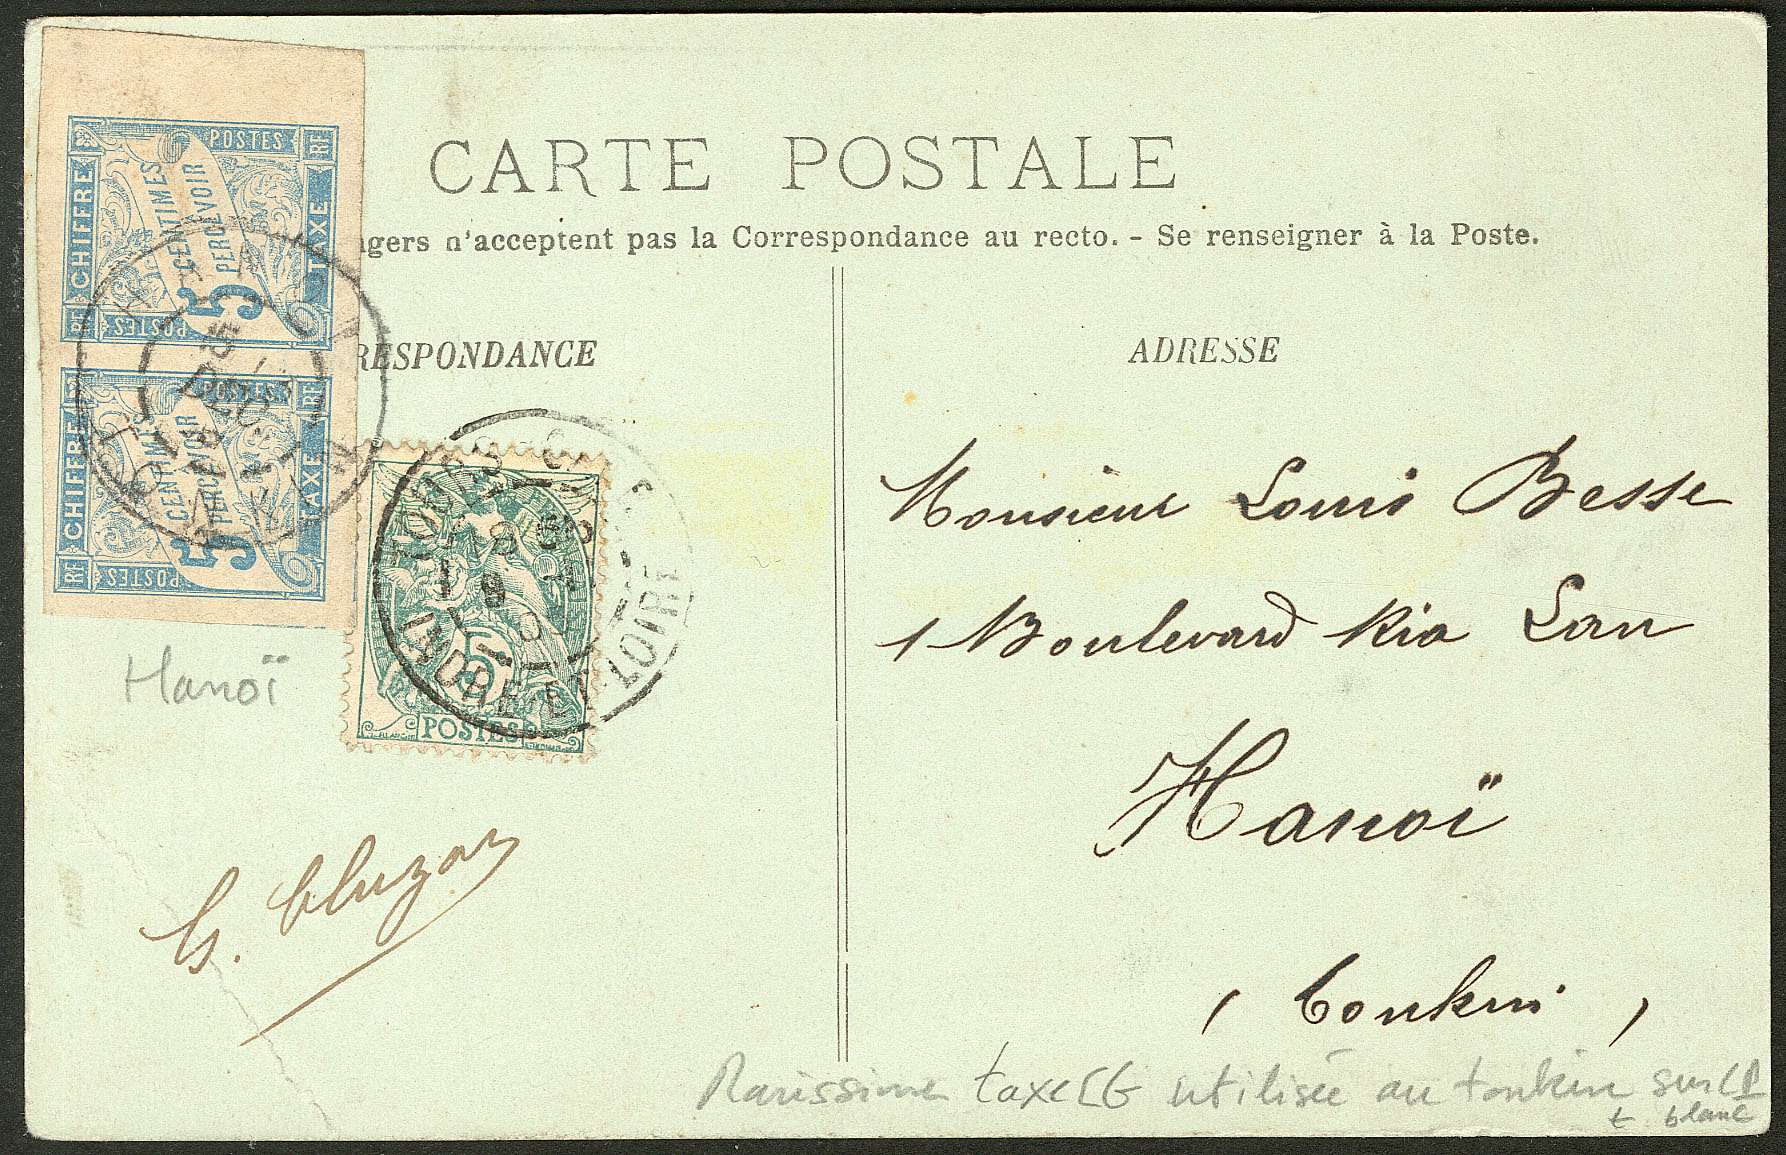 CARTE POSTALE
ngers n'acceptent pas la Correspondance au recto. - Se renseigner à la Poste.
RESPONDANCE
ADRESSE
POSTES RF
CHIFFRE
CENTIMES
PERCEVOIR
5
TAXE
RF POSTES
POSTES RF
CHIFFRE
PERCEVOIR
5
TAXE
RF POSTES
HANOI
DEC
TONKIN
5
POSTES
TOURS
INDRE-ET-LOIRE
Hanoï
Monsieur Louis Besse
1 Boulevard Ria Lan
Hanoï
(Tonkin)
G. Cluzon
Rarissime taxe CG utilisée au tonkin sur CP
t blanc